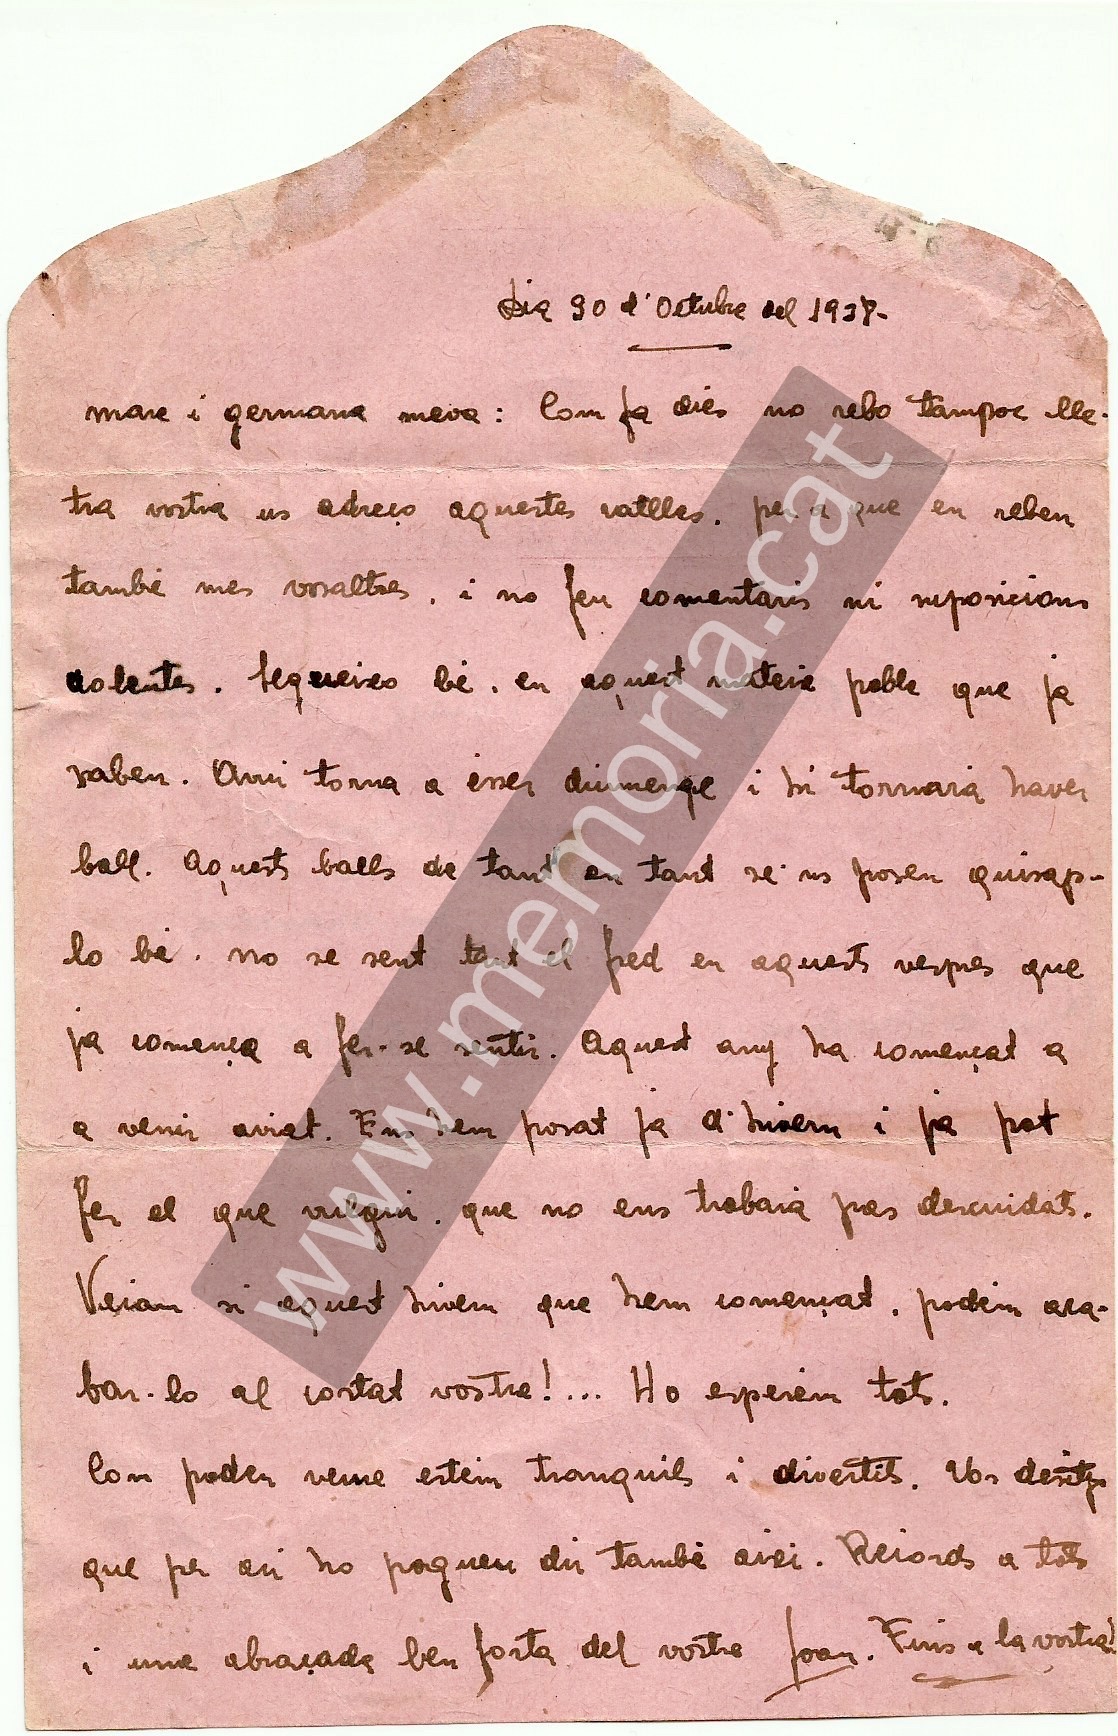 Dia 30 d'Octubre del 1938-
mare i germana meva: Com fa dies no rebo tampoc lle-
tra vostra us adreço aquestes ratlles, per a que en reben
també mes vosaltres, i no feu comentaris ni suposicions
dolentes. Segueixo bé, en aquest mateix poble que ja
saben. Avui torna a ésser diumenge i hi tornarà haver
ball. Aquests balls de tant en tant se'ns posen quisap-
lo bé. no se sent tant el fred en aquests vespres que
ja comença a fer-se sentir. Aquest any ha començat a
a venir aviat. Ens hem posat ja d'hivern i ja pot
fer el que vulgui, que no ens trobarà pas descuidats.
Veiam si aquest hivern que hem començat, podem aca-
bar-lo al costat vostre!... Ho esperem tots.
Con poden veure estem tranquils i divertits. Vos desitjo
que per aqui ho poguen dir també aixi. Records a tots
i una abraçada ben forta del vostre Joan. Fins a la vostra!
www.memoria.cat